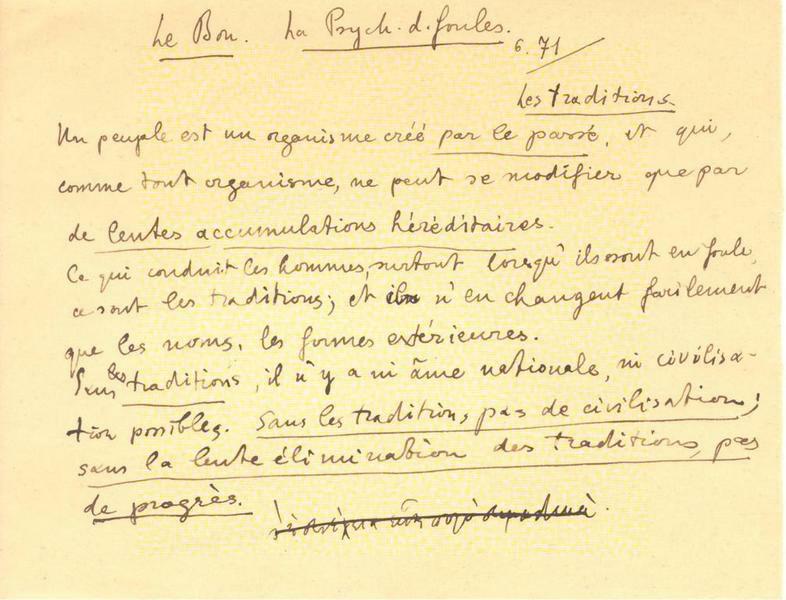 Le Bon. La Psych. d. foules.
6. 71
Les traditions
Un peuple est un organisme créé par le passé, et qui,
comme tout organisme, ne peut se modifier que par
de lentes accumulations héréditaires.
Ce qui conduit les hommes, surtout lorsqu'ils sont en foule,
ce sont les traditions; et ils n'en changent facilement
que les noms, les formes extérieures.
Sans les traditions, il n'y a ni âme nationale, ni civilisa-
tion possibles. Sans les traditions, pas de civilisation;
sans la lente élimination des traditions, pas
de progrès.